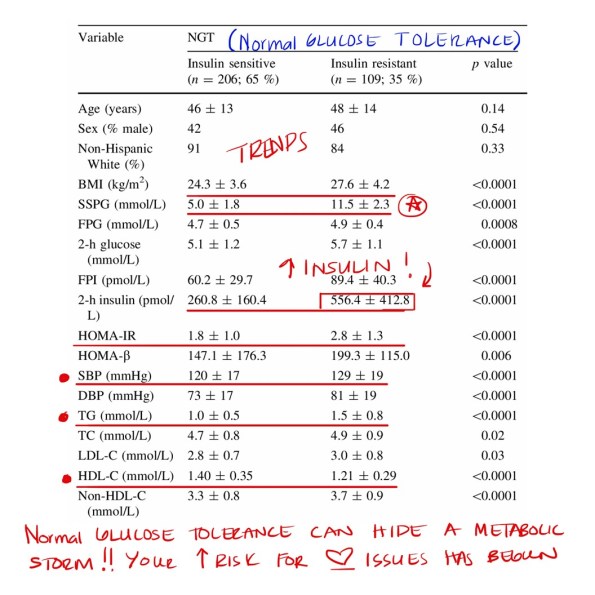 Variable NGT (Normal GLUCOSE TOLERANCE)
Insulin sensitive Insulin resistant p value
(n = 206; 65 %) (n = 109; 35 %)
Age (years) 46 ± 13 48 ± 14 0.14
Sex (% male) 42 46 0.54
Non-Hispanic 91 84 0.33
White (%)
TRENDS
BMI (kg/m²) 24.3 ± 3.6 27.6 ± 4.2 <0.0001
SSPG (mmol/L) 5.0 ± 1.8 11.5 ± 2.3 <0.0001
FPG (mmol/L) 4.7 ± 0.5 4.9 ± 0.4 0.0008
2-h glucose 5.1 ± 1.2 5.7 ± 1.1 <0.0001
(mmol/L)
↑ INSULIN !
FPI (pmol/L) 60.2 ± 29.7 89.4 ± 40.3 <0.0001
2-h insulin (pmol/ 260.8 ± 160.4 556.4 ± 412.8 <0.0001
L)
HOMA-IR 1.8 ± 1.0 2.8 ± 1.3 <0.0001
HOMA-β 147.1 ± 176.3 199.3 ± 115.0 0.006
SBP (mmHg) 120 ± 17 129 ± 19 <0.0001
DBP (mmHg) 73 ± 17 81 ± 19 <0.0001
TG (mmol/L) 1.0 ± 0.5 1.5 ± 0.8 <0.0001
TC (mmol/L) 4.7 ± 0.8 4.9 ± 0.9 0.02
LDL-C (mmol/L) 2.8 ± 0.7 3.0 ± 0.8 0.03
HDL-C (mmol/L) 1.40 ± 0.35 1.21 ± 0.29 <0.0001
Non-HDL-C 3.3 ± 0.8 3.7 ± 0.9 <0.0001
(mmol/L)
Normal GLUCOSE TOLERANCE CAN HIDE A METABOLIC
STORM!! YOUR ↑ RISK FOR ♡ ISSUES HAS BEGUN